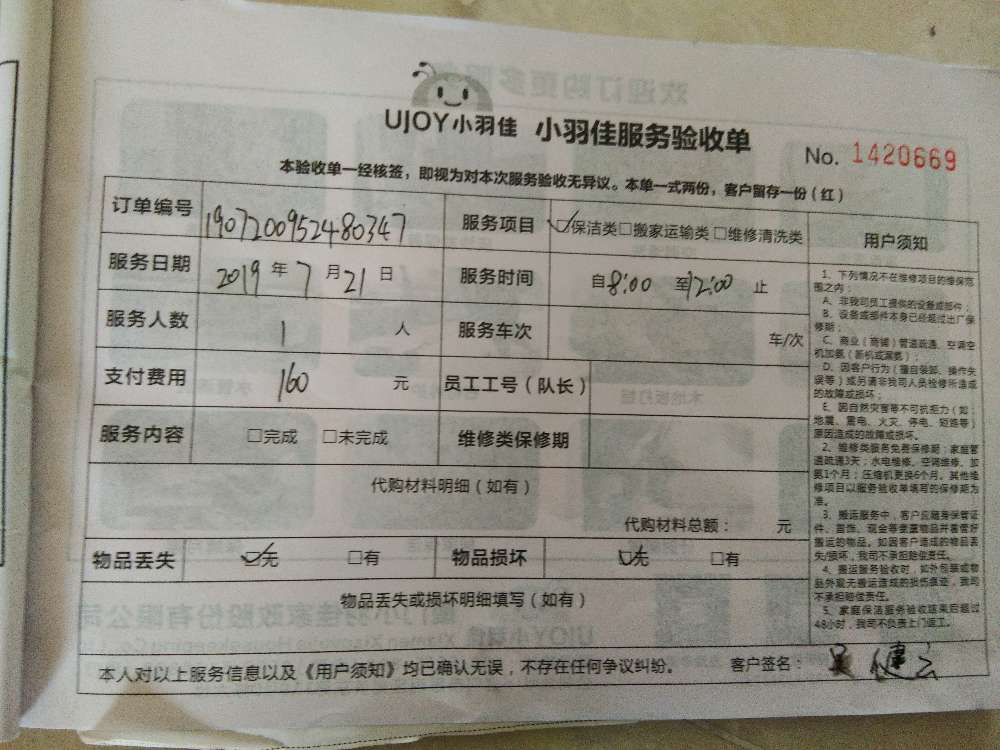 UJOY小羽佳 小羽佳服务验收单
No. 1420669
本验收单一经核签，即视为对本次服务验收无异议。本单一式两份，客户留存一份（红）
订单编号 1907200952480347 服务项目 ☑保洁类□搬家运输类□维修清洗类 用户须知
服务日期 2019年7月21日 服务时间 自8:00 至12:00 止
服务人数 1 人 服务车次 车/次
支付费用 160 元 员工工号（队长）
服务内容 □完成 □未完成 维修类保修期
代购材料明细（如有）
代购材料总额： 元
物品丢失 ☑无 □有 物品损坏 ☑无 □有
物品丢失或损坏明细填写（如有）
本人对以上服务信息以及《用户须知》均已确认无误，不存在任何争议纠纷。 客户签名：
1、下列情况不在维修项目的维保范
围之内：
A、非我司员工提供的设备或部件；
B、设备或部件本身已经超过出厂保
修期；
C、商业（商铺）管道疏通、空调空
机加氨（新机或漏氨）；
D、因客户行为（擅自装卸、操作失
误等）或另请非我司人员检修所造成
的故障或损坏；
E、因自然灾害等不可抗拒力（如：
地震、雷电、火灾、停电、短路等）
原因造成的故障或损坏。
2、维修类服务免费保修期：家庭管
道疏通3天；水电维修、空调维修、加
氨1个月；压缩机更换6个月。其他维
修项目以服务验收单填写的保修期为
准。
3、搬运服务中，客户应随身保管证
件、首饰、现金等贵重物品并看管好
搬运的物品。如因客户造成的物品丢
失/损坏，我司不承担赔偿责任。
4、搬运服务验收时，如外包装或物
品外观无搬运造成的损伤痕迹，我司
不承担赔偿责任。
5、家庭保洁服务验收结束后超过
48小时，我司不负责上门返工。